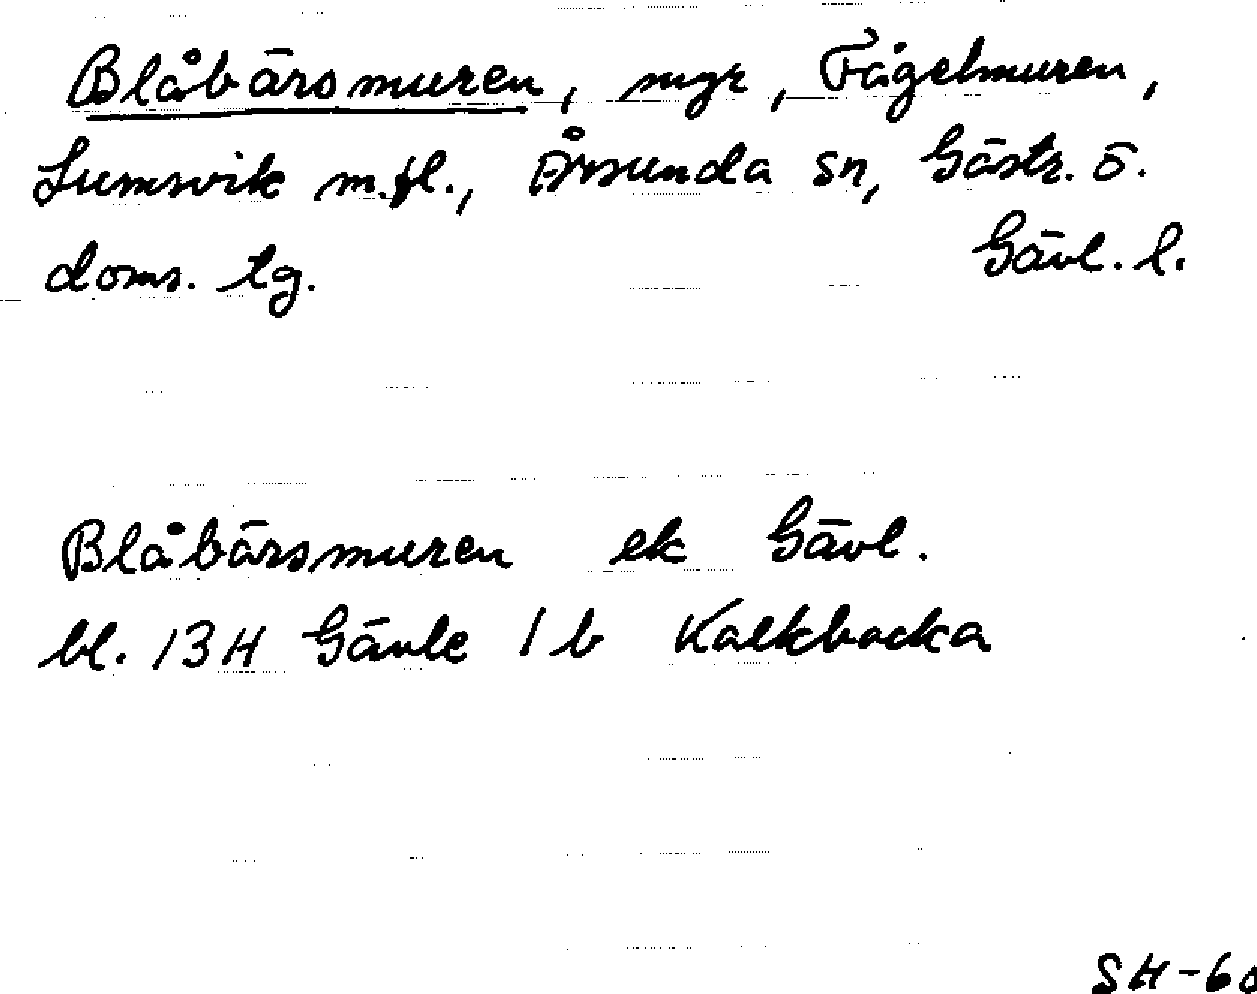 Blåbärsmuren, myr, Fågelmuren,
Lumsvik m.fl., Årsunda sn, Gästr. ö.
doms. tg. Gävl. l.
Blåbärsmuren ek Gävl.
bl. 13H Gävle 1b Kalkbacka
SH-60